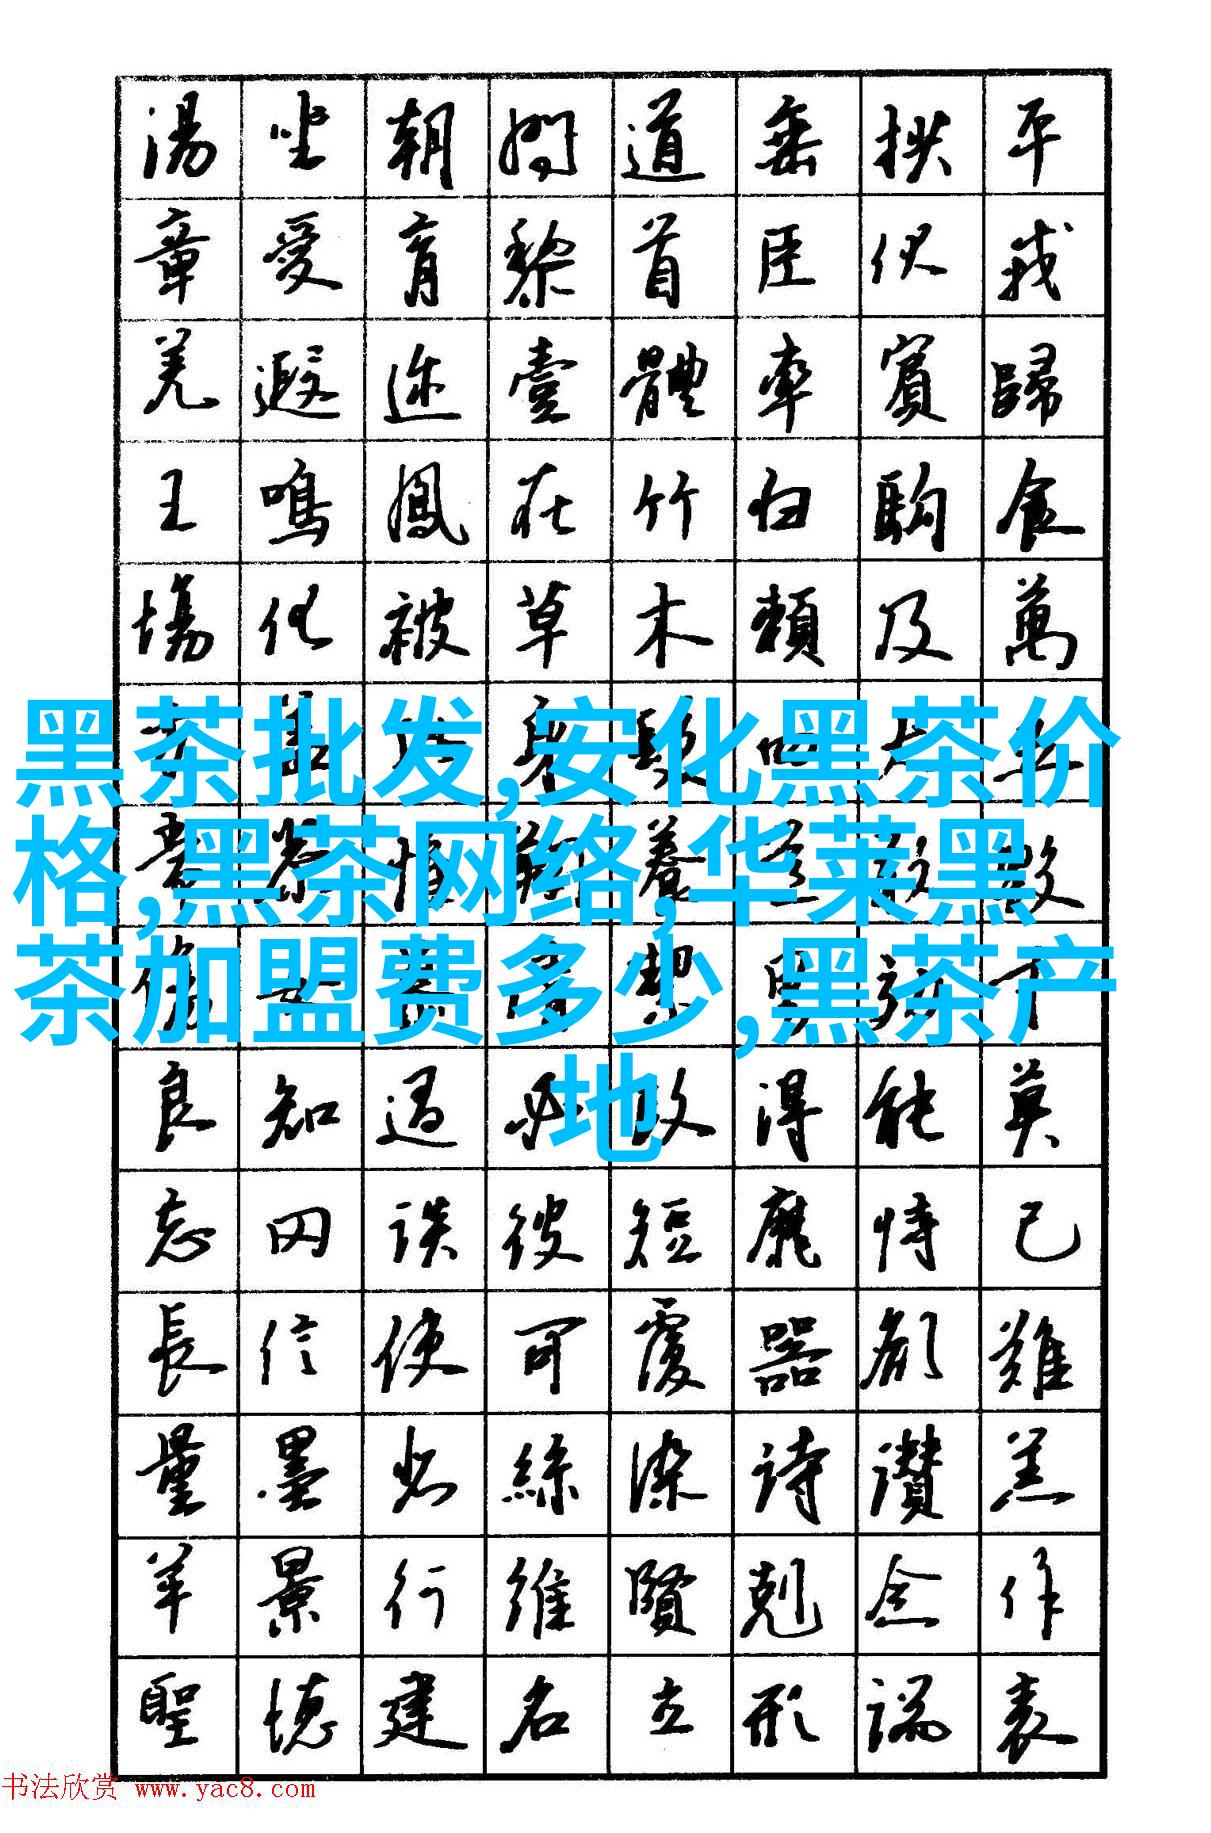 湯坐朝問道垂拱平
章愛育黎首臣伏戎
羌遐迩壹體率賓歸
王鳴鳳在竹白駒食
場化被草木賴及萬
黑茶批发,安化黑茶价
格,黑茶网络,华莱黑
茶加盟费多少,黑茶产
地
良知過必改得能莫
忘罔談彼短靡恃己
長信使可覆器欲難
量墨悲絲染詩讚羔
羊景行維賢剋念作
聖德建名立形端表
书法欣赏 www.yac8.com